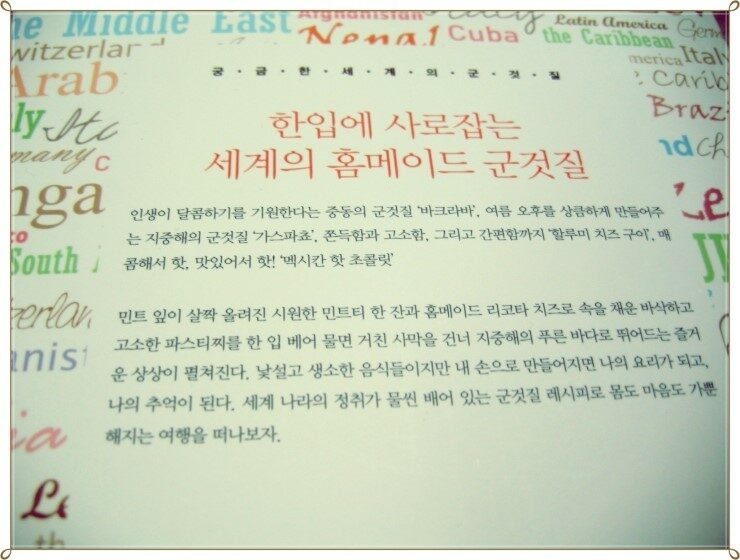 he Middle East
Afghanistan
Nepal
Cuba
Latin America
the Caribbean
Germ
witzerlar
merica
Ital
Arab
Carib
Braz
ly
many
c
nd
Ch
궁·금·한·세·계·의·군·것·질
한입에 사로잡는
세계의 홈메이드 군것질
nga
인생이 달콤하기를 기원한다는 중동의 군것질 '바크라바', 여름 오후를 상큼하게 만들어주
는 지중해의 군것질 '가스파쵸', 쫀득함과 고소함, 그리고 간편함까지 '할루미 치즈 구이', 매
콤해서 핫, 맛있어서 핫! '멕시칸 핫 초콜릿'
to
South
zerlan
anist
민트 잎이 살짝 올려진 시원한 민트티 한 잔과 홈메이드 리코타 치즈로 속을 채운 바삭하고
고소한 파스티찌를 한 입 베어 물면 거친 사막을 건너 지중해의 푸른 바다로 뛰어드는 즐거
운 상상이 펼쳐진다. 낯설고 생소한 음식들이지만 내 손으로 만들어지면 나의 요리가 되고,
나의 추억이 된다. 세계 나라의 정취가 물씬 배어 있는 군것질 레시피로 몸도 마음도 가뿐
해지는 여행을 떠나보자.
ia
Le
th